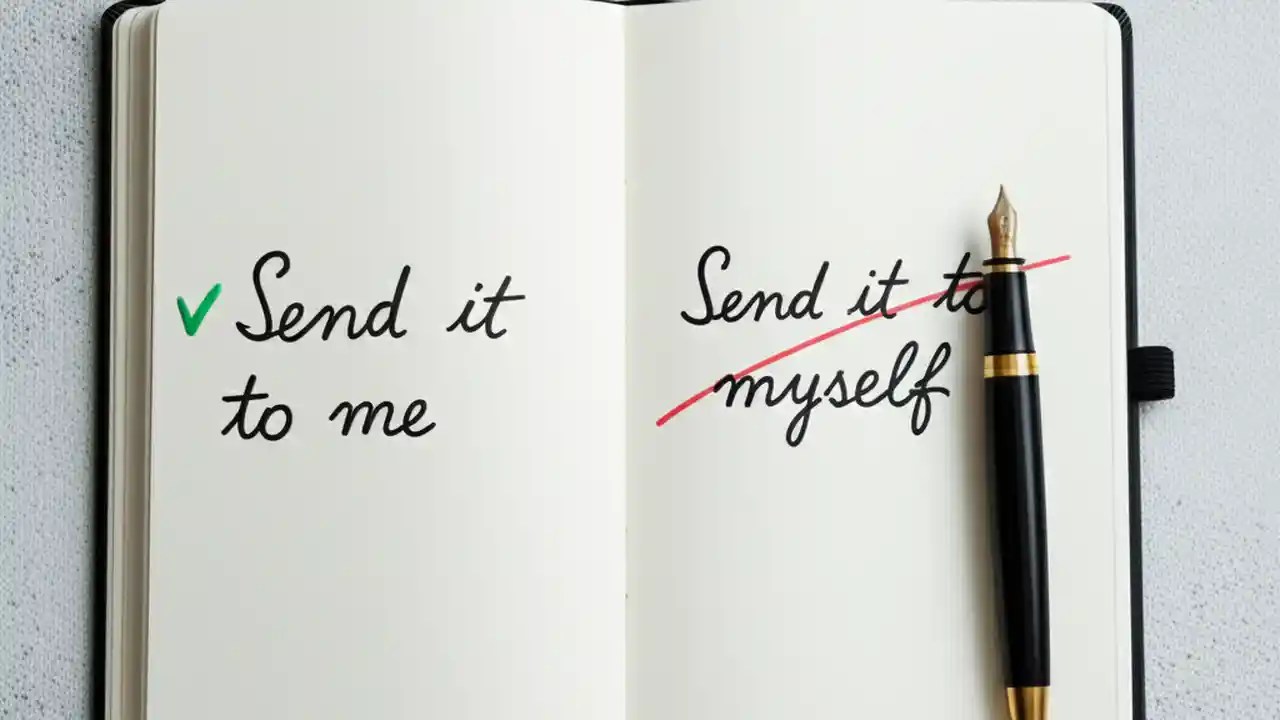 Send it
to me
Send it to
myself